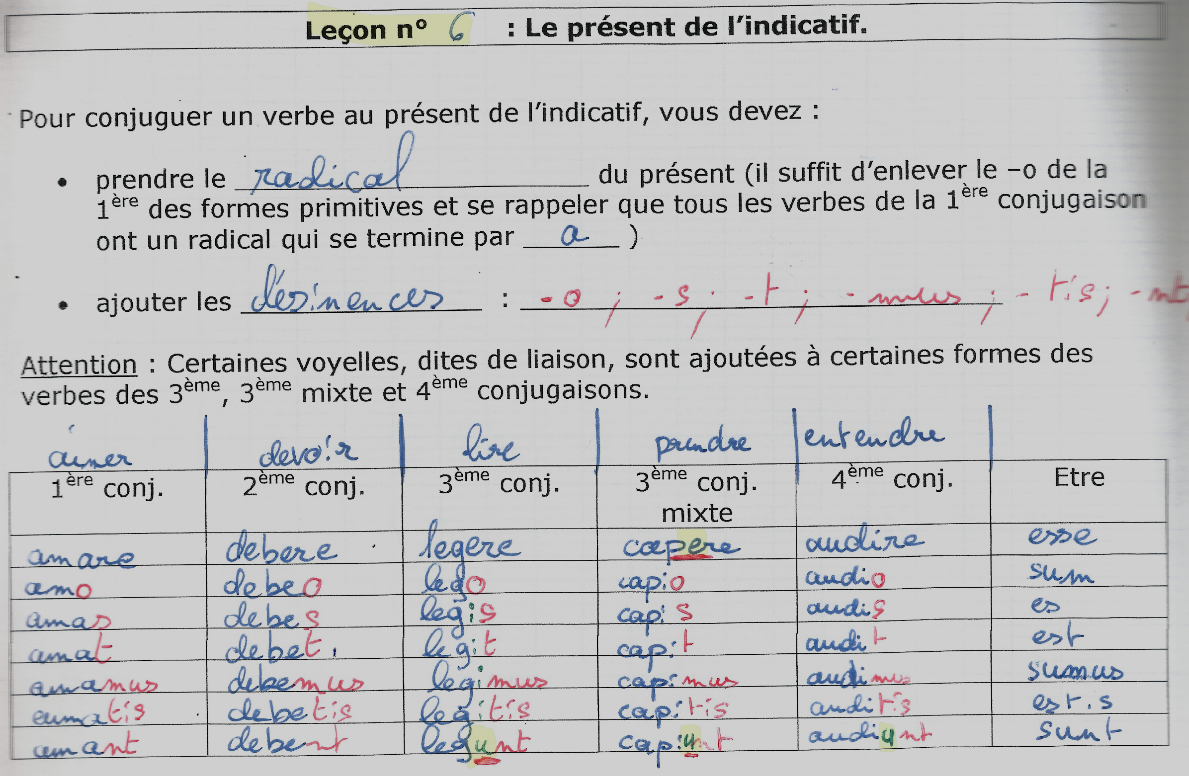 Leçon n° 6 : Le présent de l'indicatif.
Pour conjuguer un verbe au présent de l'indicatif, vous devez :
• prendre le radical du présent (il suffit d'enlever le –o de la
1ère des formes primitives et se rappeler que tous les verbes de la 1ère conjugaison
ont un radical qui se termine par a )
• ajouter les désinences : -o ; -s ; -t ; -mus ; -tis ; -nt
Attention : Certaines voyelles, dites de liaison, sont ajoutées à certaines formes des
verbes des 3ème, 3ème mixte et 4ème conjugaisons.
aimer devoir lire prendre entendre
1ère conj. 2ème conj. 3ème conj. 3ème conj. 4ème conj. Etre
mixte
amare debere legere capere audire esse
amo debeo lego capio audio sum
amas debes legis capis audis es
amat debet legit capit audit est
amamus debemus legimus capimus audimus sumus
amatis debetis legitis capitis auditis estis
amant debent legunt capiunt audiunt sunt